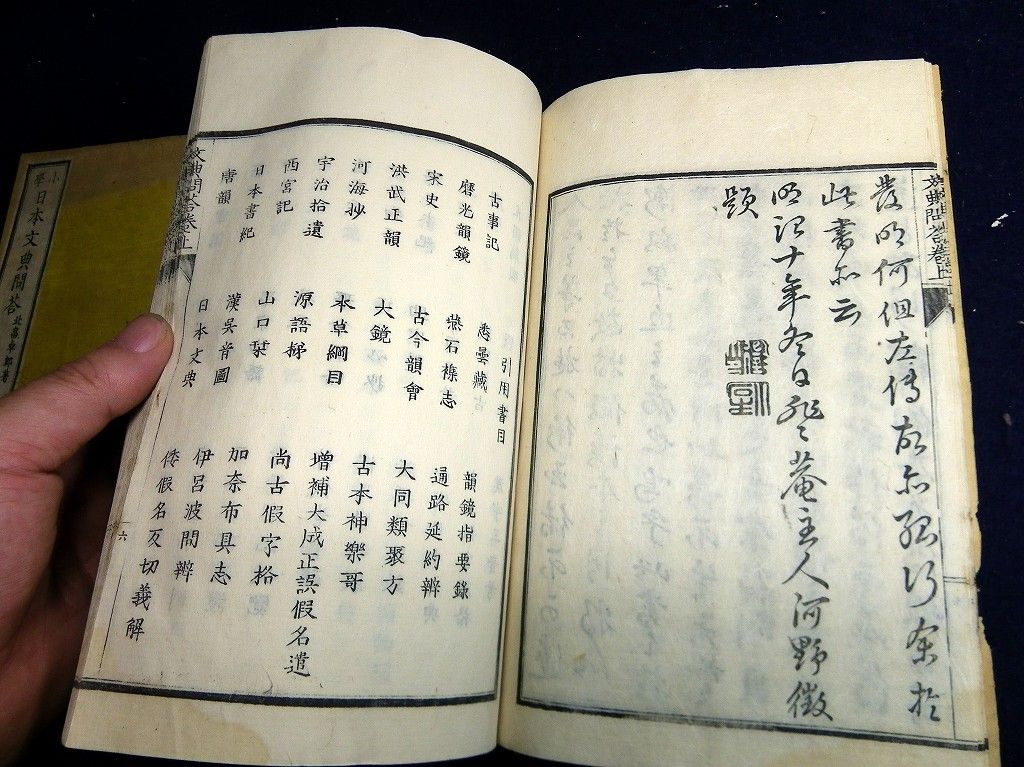 文典問答卷上
發明何但左傳故亦行余於
此書亦云
明治十年冬日菴主人河野徵
題
引用書目
古事記 悉曇藏 韻鏡指要錄
磨光韻鏡 燕石襍志 通路延約辨
宋史 古今韻會 大同類聚方
洪武正韻 大鏡 古本神樂哥
河海抄 本草綱目 增補大成正誤假名遣
宇治拾遺 源語梯 尚古假字格
西宮記 山口栞 加奈布具志
日本書紀 漢吳音圖 伊呂波問辨
唐韻 日本文典 倭假名反切義解
文典問答卷上 六
小學日本文典問答 北畠郎著